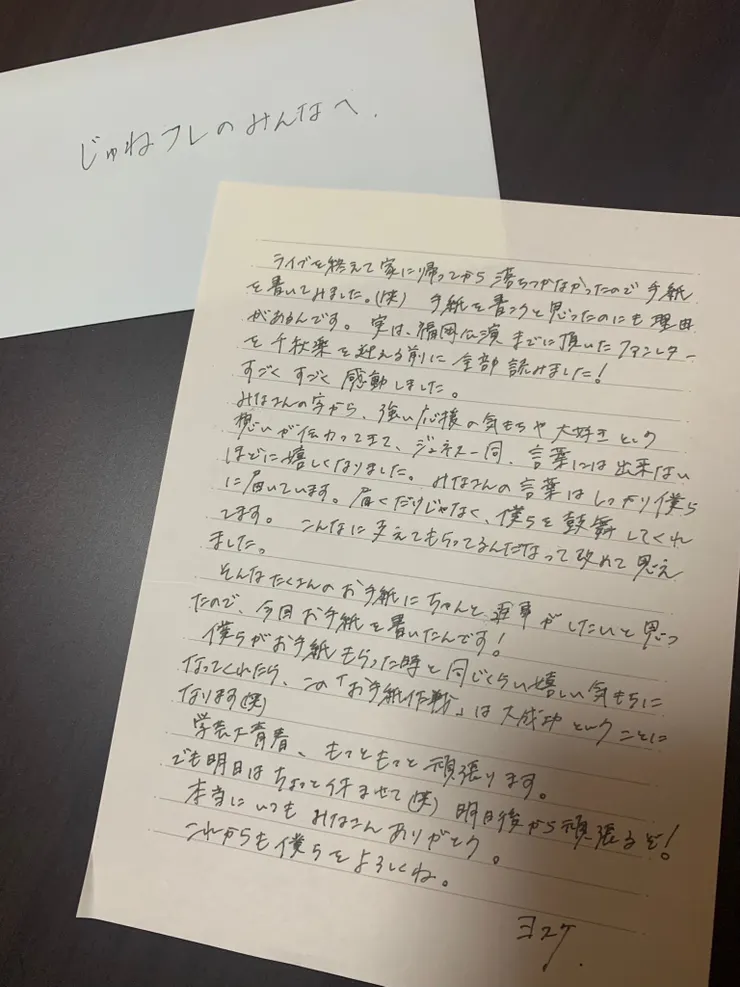 じゅねフレのみんなへ.
ライブを終えて家に帰ってから落ちつかなかったので手紙
を書いてみました。(笑) 手紙を書こうと思ったのにも理由
があるんです。実は、福岡公演までに頂いたファンレター
を千秋楽を迎える前に全部読みました!
すごくすごく感動しました。
みなさんの字から、強い応援の気もちや大好きという
想いが伝わってきて、ジュネス一同、言葉には出来ない
ほどに嬉しくなりました。みなさんの言葉はしっかり僕ら
に届いています。届くだけじゃなく、僕らを鼓舞してくれ
てます。こんなに支えてもらってるんだなって改めて思え
ました。
そんなたくさんのお手紙にちゃんと返事がしたいと思っ
たので、今回お手紙を書いたんです!
僕らがお手紙もらった時と同じくらい嬉しい気もちに
なってくれたら、この「お手紙作戦」は大成功ということに
なります(笑)
学芸大青春、もっともっと頑張ります。
でも明日はちょっと休ませて(笑) 明日後から頑張るぞ!
本当にいつもみなさんありがとう。
これからも僕らをよろしくね。
ヨスケ.